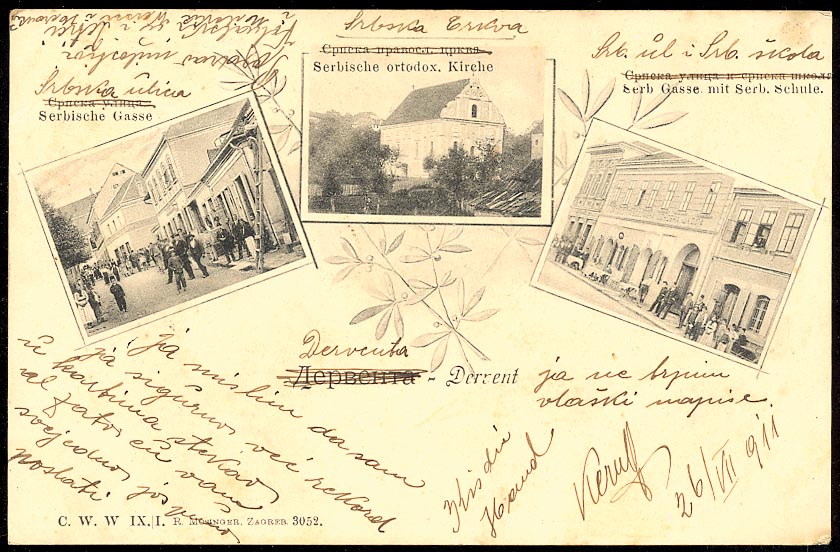 Srbska Crkva
Српска правосл. црква.
Serbische ortodox. Kirche
Srbska ulica
Српска улица.
Serbische Gasse
Srb. ul i Srb. škola
Српска улица и српска школа
Serb Gasse mit Serb. Schule.
Derventa
Дервента - Dervent
Ja mislim da sam
ja sigurno već rekord
u kartima stekao
al zato ću vama
svejedno još
poslati.
ja ne trpim
vlaški napise.
Küss die
Hand
26/VII 911
C. W. W IX./I. R. Mosinger, Zagreb. 3052.